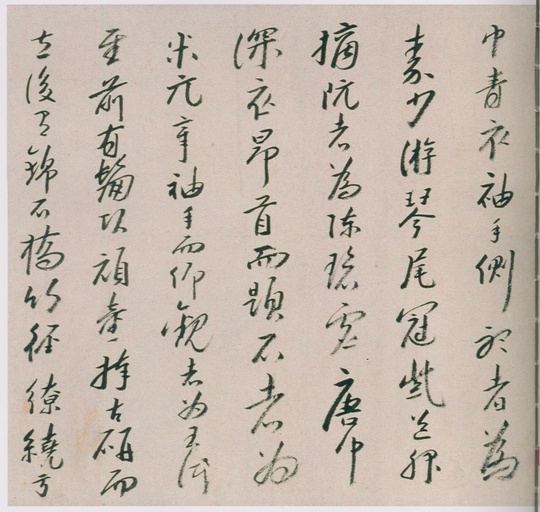 巾青衣袖手側聽者為
秦少游琴尾冠紫道服
摘阮者為陳碧虛唐巾
深衣昂首而題石者為
米元章袖手而仰觀者為王仲
至前有鬅頭頑童捧古研而
立後有錦石橋竹徑繚繞於